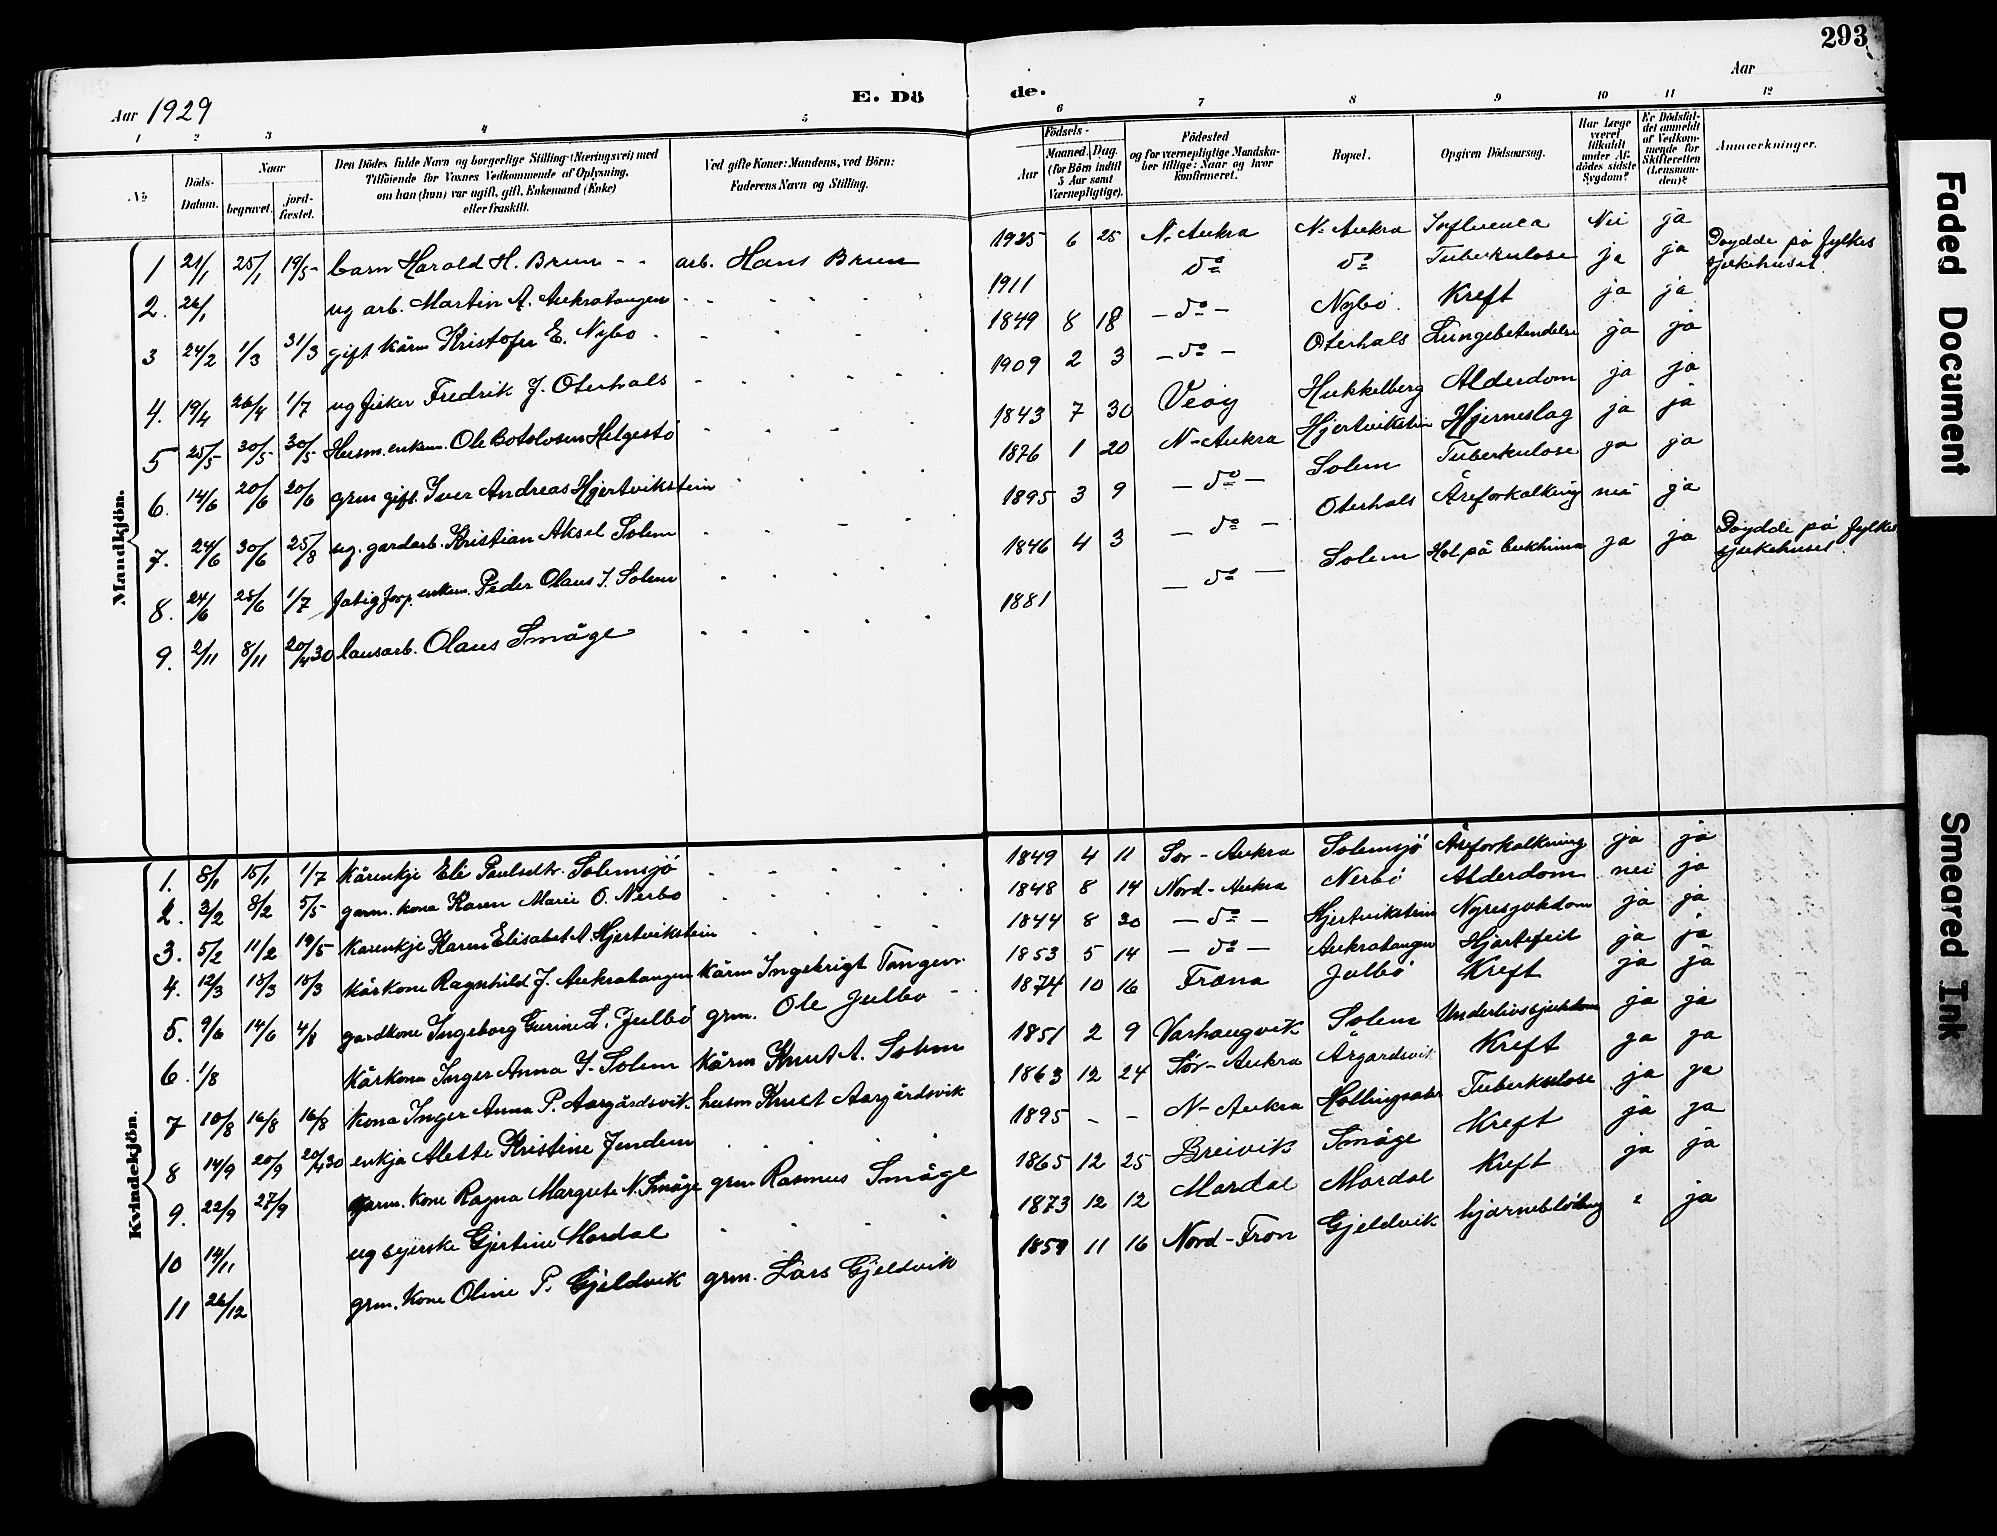 293
Aar 1929
E. Dö
de.
Aar
1 2 3 4 5 6 7 8 9 10 11 12
No
Döds-Datum.
Naar
begravet.
jord-fæstet.
Den Dödes fulde Navn og borgerlige Stilling (Næringsvei) med
Tilföiende for Voxnes Vedkommende af Oplysning,
om han (hun) var ugift, gift, Enkemand (Enke)
eller fraskilt.
Ved gifte Koner: Mandens, ved Börn:
Faderens Navn og Stilling.
Födsels-
Aar
Maaned. Dag.
(for Börn indtil
5 Aar samt
Værnepligtige).
Födested
og for værnepligtige Mandska-
ber tillige: Naar og hvor
konfirmeret.
Bopæl.
Opgiven Dödsaarsag.
Har Læge
været
tilkaldt
under Af-
dödes sidste
Sygdom?
Er Dödsfal-
det anmeldt
af Vedkom-
mende for
Skifteretten
(Lensman-
den)?
Anmærkninger.
Mandkjön.
1 21/1 25/1 19/5 barn Harald H. Brun - - arb. Hans Brun 1925 6 25 N. Aukra N. Aukra Influenca Nei ja
2. 26/1 ug arb. Martin A. Aukratangen 1911 do do Tuberkulose ja ja Döydde på fylkes sjukehuset.
3 24/2 1/3 31/3 gift kårm Kristofer E. Nybö 1849 8 18 - do - Nybö Kreft ja ja
4. 19/4 26/4 1/7 ug fisker Fredrik J. Oterhals 1909 2 3 - do - Oterhals Lungebetendelse ja ja
5 25/5 30/5 30/5 Husm. enkem. Ole Botolvsen Helgestö 1843 7 30 Veöy Hukkelberg Alderdom ja ja
6. 14/6 20/6 20/6 grm gift. Iver Andreas Hjertvikstein 1876 1 20 N-Aukra Hjertvikstein Hjerneslag ja ja
7. 24/6 30/6 25/8 ug. gardarb. Kristian Aksel Solem 1895 3 9 - do - Solem Tuberkulose ja ja
8. 24/6 28/6 1/7 fatigforp. enkem. Peder Olaus J. Solem 1846 4 3 - do - Oterhals Åreforkalking nei ja
9. 2/11 8/11 20/4 30 lausarb. Olaus Småge 1881 - do - Solem Hol på bukhinna ja ja Döydde på fylkes sjukehuset.
Kvindekjön.
1. 8/1 15/1 1/7 kårenkje Eli Paulsdtr. Solemsjö 1849 4 11 Sör-Aukra Solemsjö Åreforkalkning ja ja
2. 3/2 8/2 5/5 garm. kona Karen Marie O. Nerbö 1848 8 14 Nord-Aukra Nerbö Alderdom nei ja
3. 5/2 11/2 19/5 kårenkje Karen Elisabet A. Hjertvikstein 1844 8 30 - do - Hjertvikstein Nyresjukdom ja ja
4. 12/3 18/3 18/3 kårkone Ragnhild J. Aukratangen kårm Ingebrigt Tangen. 1853 5 14 - do - Aukratangen Hjartefeil ja ja
5. 9/6 14/6 4/8 gardkone Ingeborg Gurine L. Julbö grm. Ole Julbö - 1874 10 16 Fræna Julbö Kreft ja ja
6. 1/8 kårkona Inger Anna J. Solem kårm Knut A. Solem 1851 2 9 Varhaugvik Solem Underlivssjukdom ja ja
7 10/8 16/8 16/8 kona Inger Anna P. Aargårdsvik husm Knut Aargårdsvik 1863 12 24 Sör-Aukra Årgardsvik Kreft ja ja
8 14/9 20/9 20/4 30 enkja Alette Kristine Jendem 1895 - - N-Aukra Tuberkulose ja ja
9. 22/9 27/9 garm. kone Ragna Margrete N. Småge grm Rasmus Småge 1865 12 25 Breivik Småge Kreft ja ja
10 14/11 ug syerske Gjertine Mordal 1873 12 12 Mordal Mordal Kreft ja ja
11 26/12 grm. Kone Oline P. Gjeldvik grm. Lars Gjeldvik 1859 11 16 Nord-Fron Gjeldvik hjærneblödning " ja
Faded Document
Smeared Ink